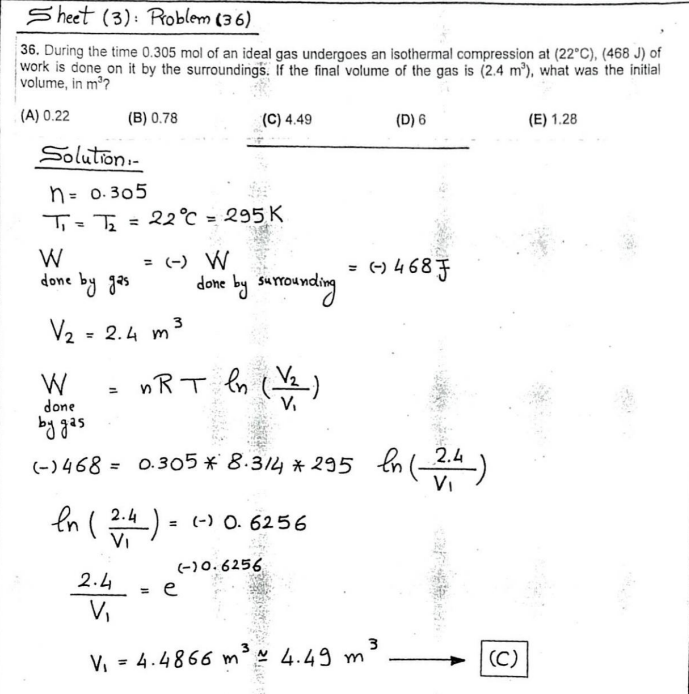 Sheet (3): Problem (36)
36. During the time 0.305 mol of an ideal gas undergoes an isothermal compression at (22°C), (468 J) of
work is done on it by the surroundings. If the final volume of the gas is (2.4 m³), what was the initial
volume, in m³?
(A) 0.22 (B) 0.78 (C) 4.49 (D) 6 (E) 1.28
Solution:-
n = 0.305
T₁ = T₂ = 22°C = 295K
W done by gas = (-) W done by surrounding = (-) 468 J
V₂ = 2.4 m³
W done by gas = nRT ln (V₂/V₁)
(-) 468 = 0.305 * 8.314 * 295 ln (2.4/V₁)
ln (2.4/V₁) = (-) 0.6256
2.4/V₁ = e^(-)0.6256
V₁ = 4.4866 m³ ≅ 4.49 m³ → (C)